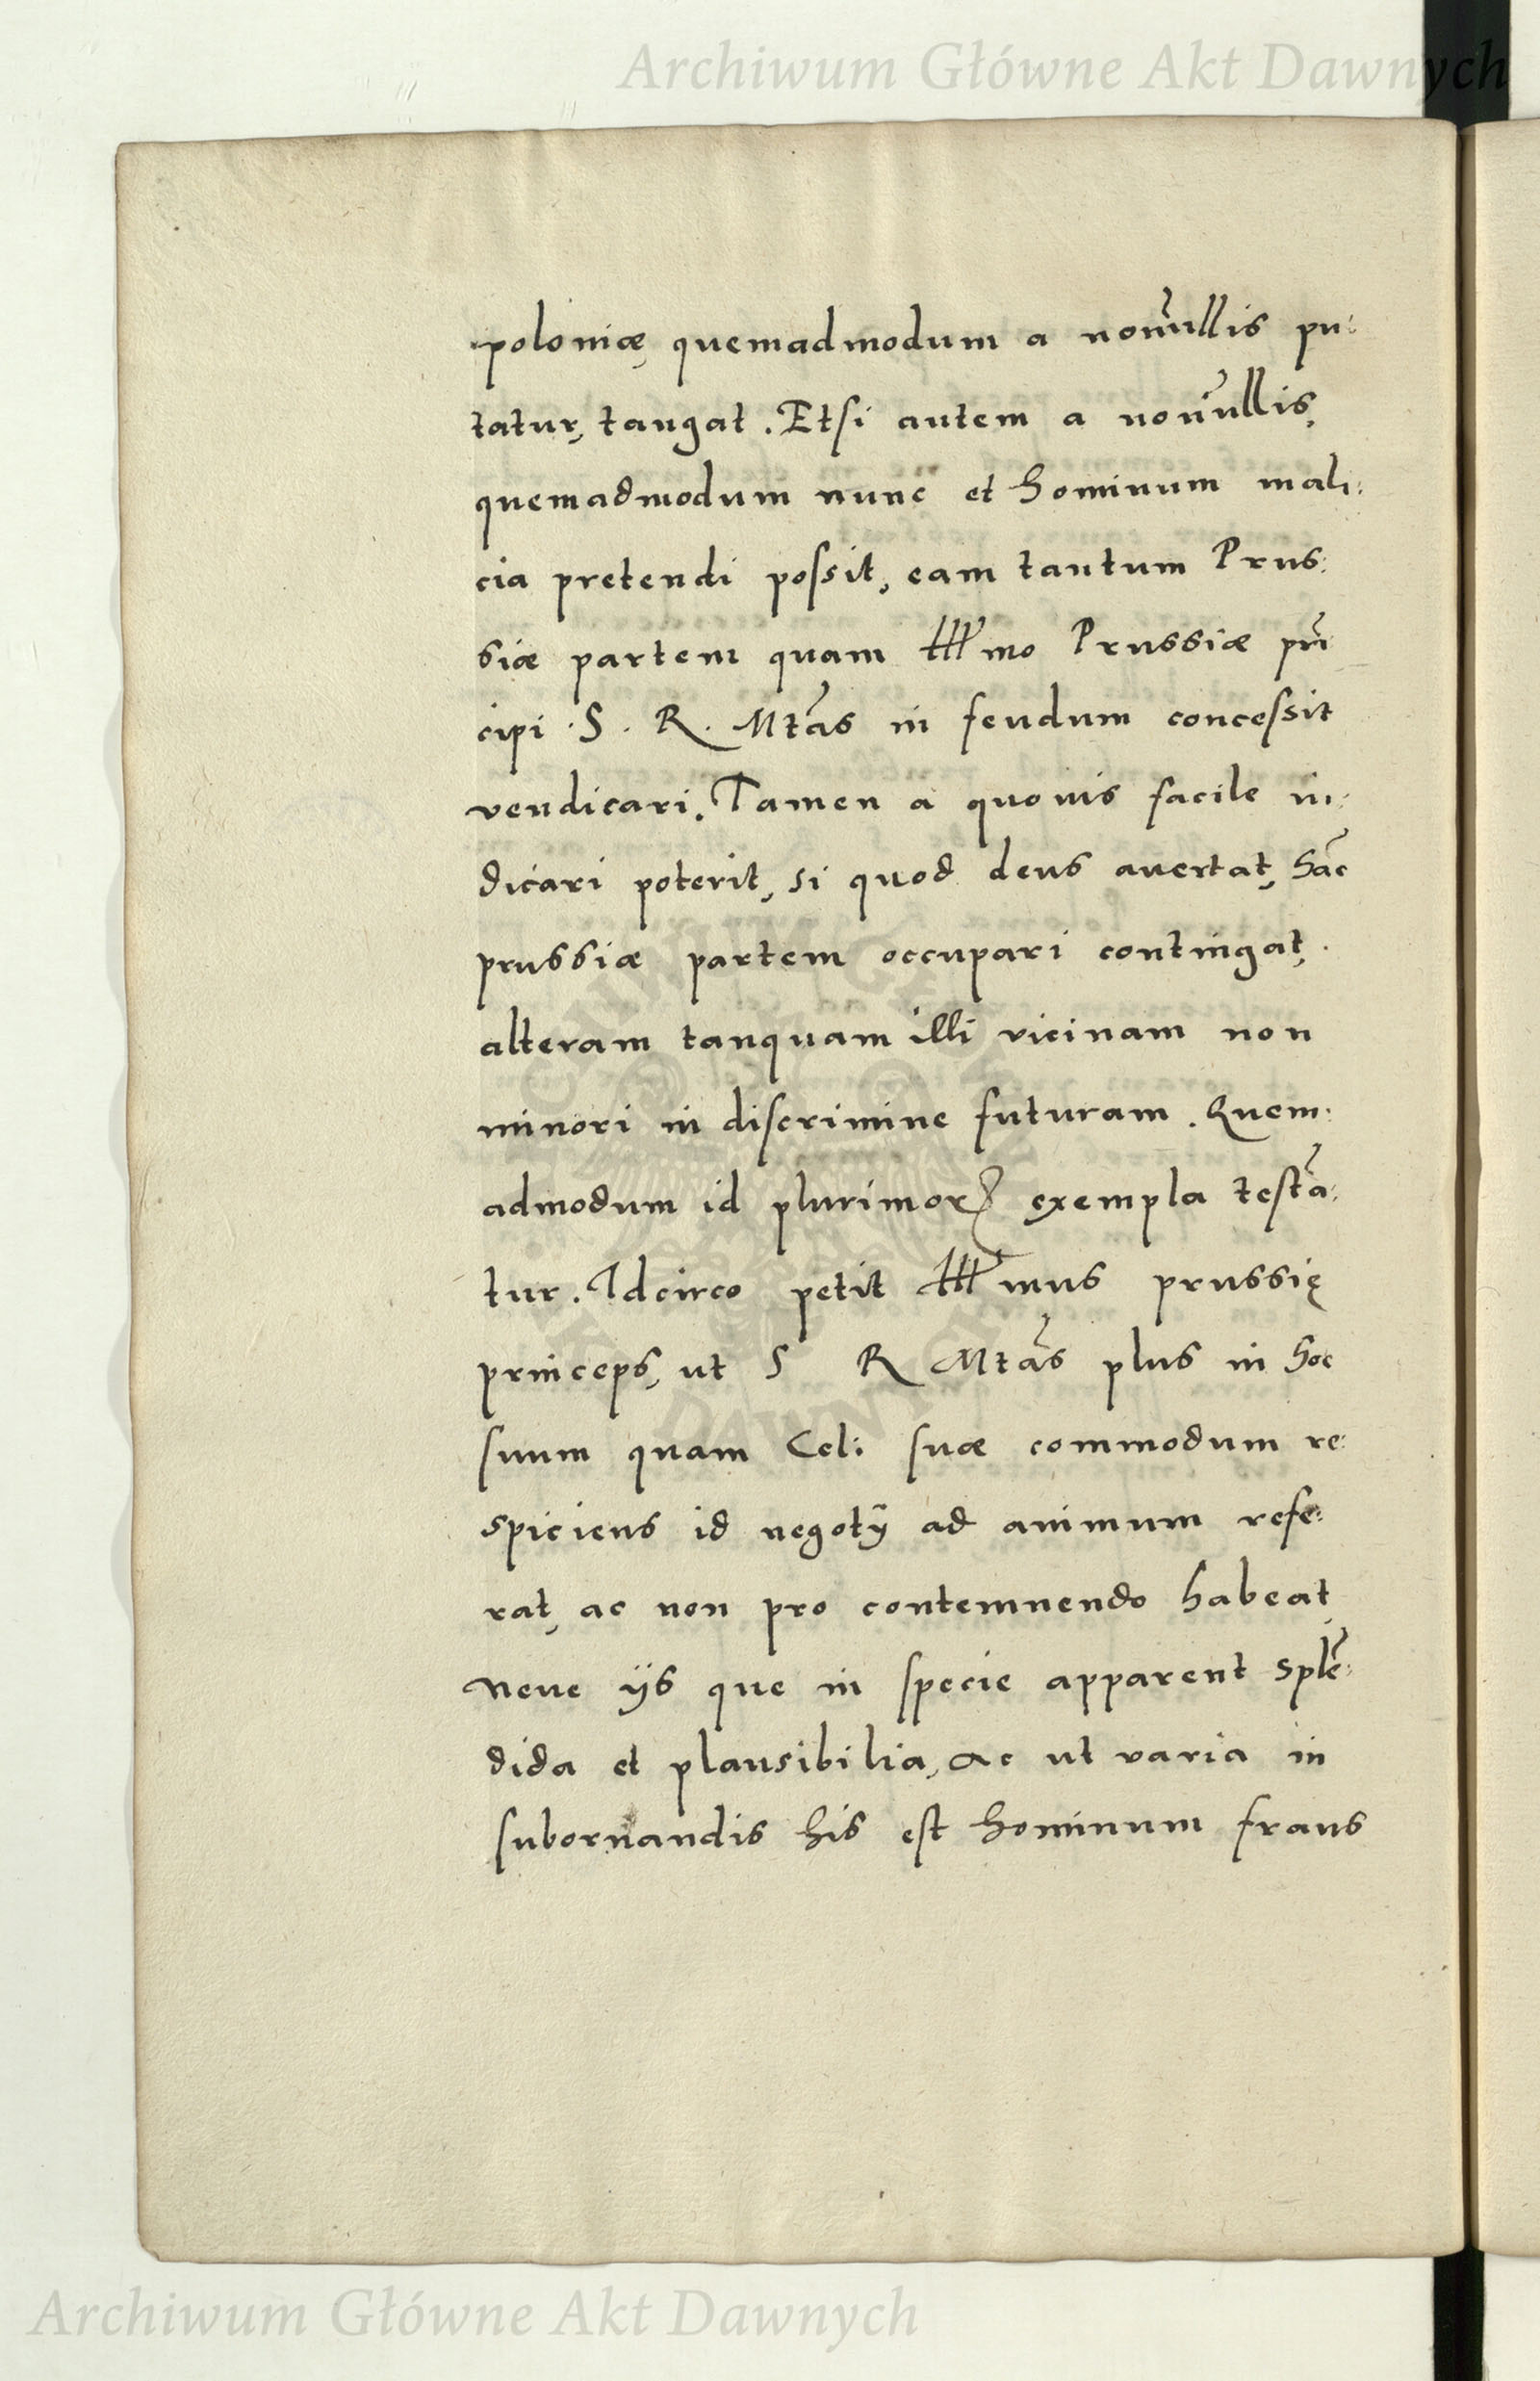 Archiwum Główne Akt Dawnych
poloniæ, quemadmodum a nonűllis pu:
tatur, tangat. Etsi autem a nonũllis,
quemadmodum nunc et hominum mali:
cia pretendi possit, eam tantum Prus:
siæ partem quam Illmo Prussiæ prĩ
cipi S. R. Mtãs in feudum concessit
vendicari. Tamen a quouis facile in:
dicari poterit, si quod deus auertat, hãc
prussiæ partem occupari contingat,
alteram tanquam illi vicinam non
minori in discrimine futuram. Quem:
admodum id plurimorꝝ exempla testã:
tur. Idcirco petit Illmus prussię
princeps, ut S R Mtãs plus in hoc
suum quam Cel: suæ commodum re:
spiciens id negotÿ ad animum refe:
rat, ac non pro contemnendo habeat,
neue ijs que in specie apparent splẽ:
dida et plausibilia, ac ut varia in
subornandis his est hominum fraus
Archiwum Główne Akt Dawnych